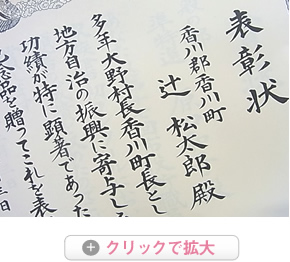 表彰状
香川郡香川町
辻 松太郎 殿
多年大野村長香川町長とし
地方自治の振興に寄与し
功績が特に顕著であった
念品を贈ってこれを表
クリックで拡大